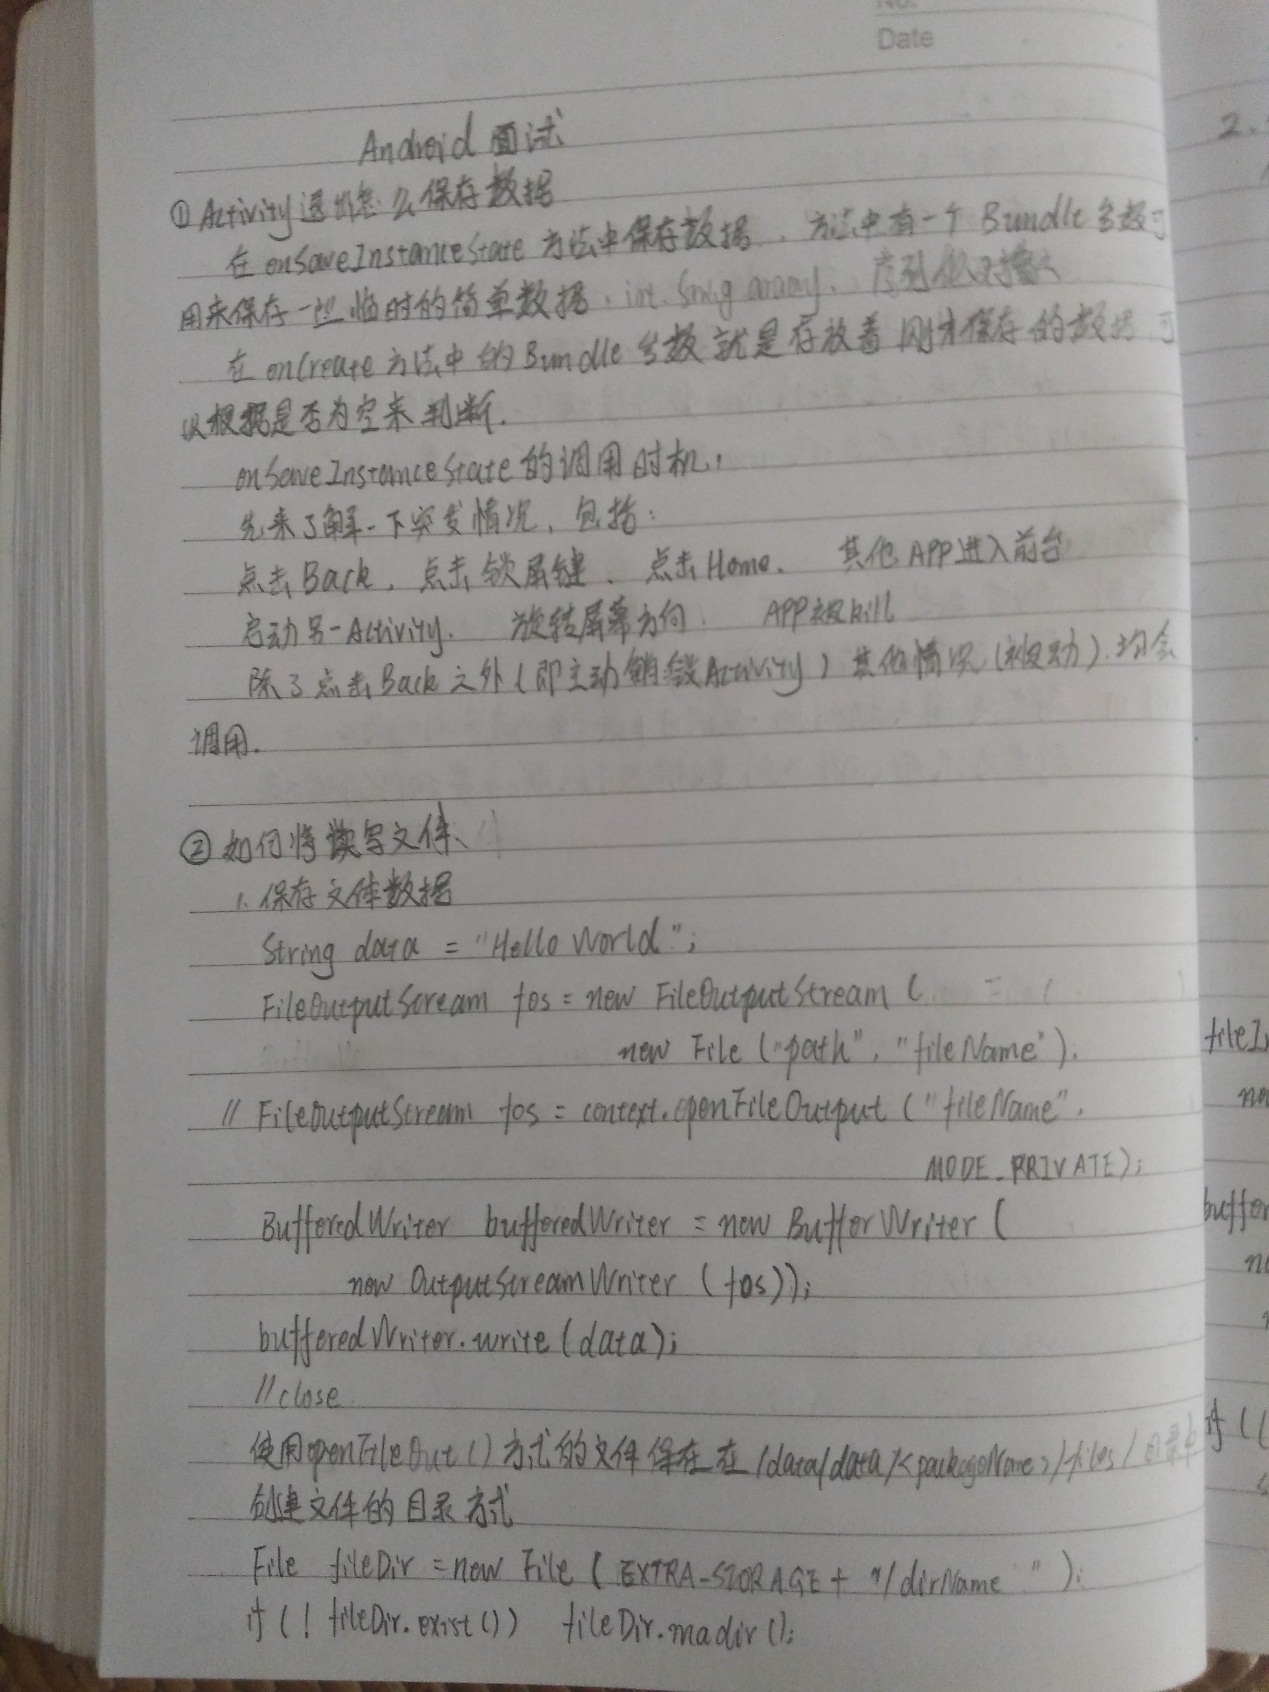 No.
Date
Android 面试
① Activity退出怎么保存数据
在 onSaveInstanceState 方法中保存数据，方法中有一个 Bundle 参数可
用来保存一些临时的简单数据，int. String array、序列化对象
在 onCreate 方法中的 Bundle 参数就是存放着刚才保存的数据 可
以根据是否为空来判断.
onSaveInstanceState 的调用时机:
先来了解一下突发情况、包括:
点击Back、点击锁屏键、点击Home、 其他APP进入前台
启动另一Activity. 旋转屏幕方向 APP被kill
除了点击Back之外(即主动销毁Activity)其他情况(被动).均会
调用.
② 如何将读写文件、
1. 保存文件数据
String data = "Hello World";
FileOutputStream fos = new FileOutputStream (
new File ("path", "fileName").
// FileOutputStream fos = context.openFileOutput ("fileName",
MODE_PRIVATE);
BufferedWriter bufferedWriter = new BufferWriter (
new OutputStreamWriter (fos));
bufferedWriter.write (data);
//close
使用openFileOut()方式的文件保存在 /data/data/<packageName>/files/目录中
创建文件的目录方式
File fileDir = new File ( EXTRA-STORAGE + "/dirName ");
if (! fileDir.exist()) fileDir.madir();
2.
fileI
buffer
if ((